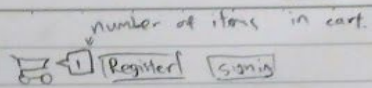 number of items in cart.
1 Register signin